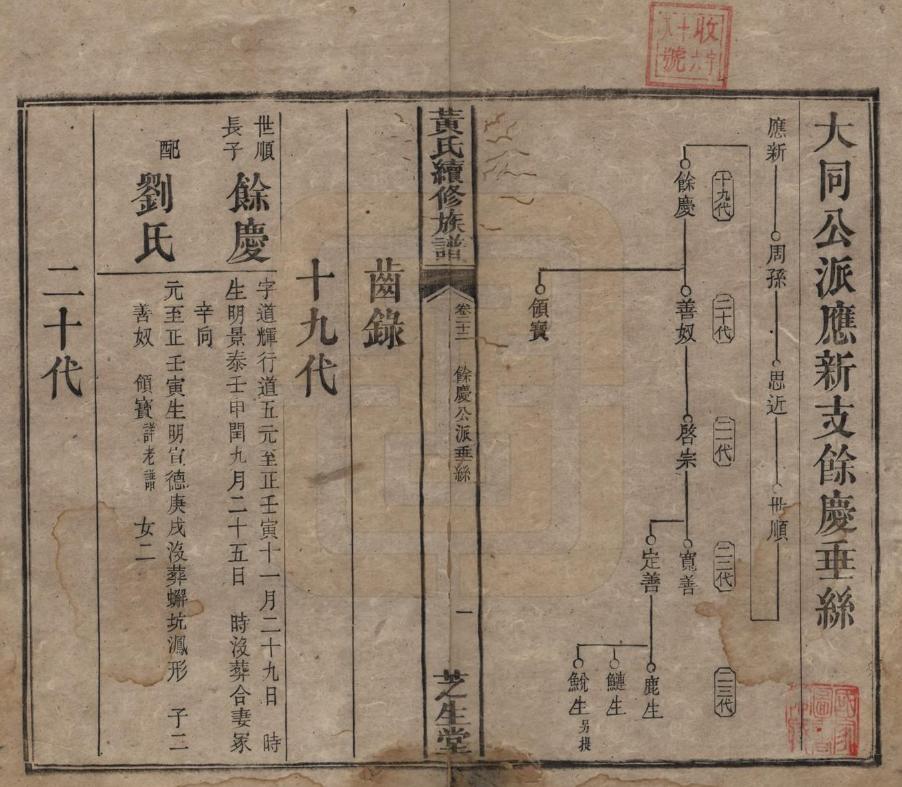 大同公派應新支餘慶垂絲
應新
周孫
思近
世順
十九代
二十代
二一代
二二代
二三代
餘慶
善奴
啓崇
寬善
領寳
定善
鹿生
鰱生
鮵生 另提
收字
十六
號
黃氏續修族譜
卷二十二
餘慶公派垂絲
一
芝生堂
齒錄
十九代
世順
長子
餘慶
字道輝行道五元至正壬寅十一月二十九日 時
生明景泰壬申閏九月二十五日 時沒葬合妻冢
辛向
配
劉氏
元至正壬寅生明宣德庚戌沒葬蠏坑鳳形 子二
善奴 領寳詳老譜 女二
二十代